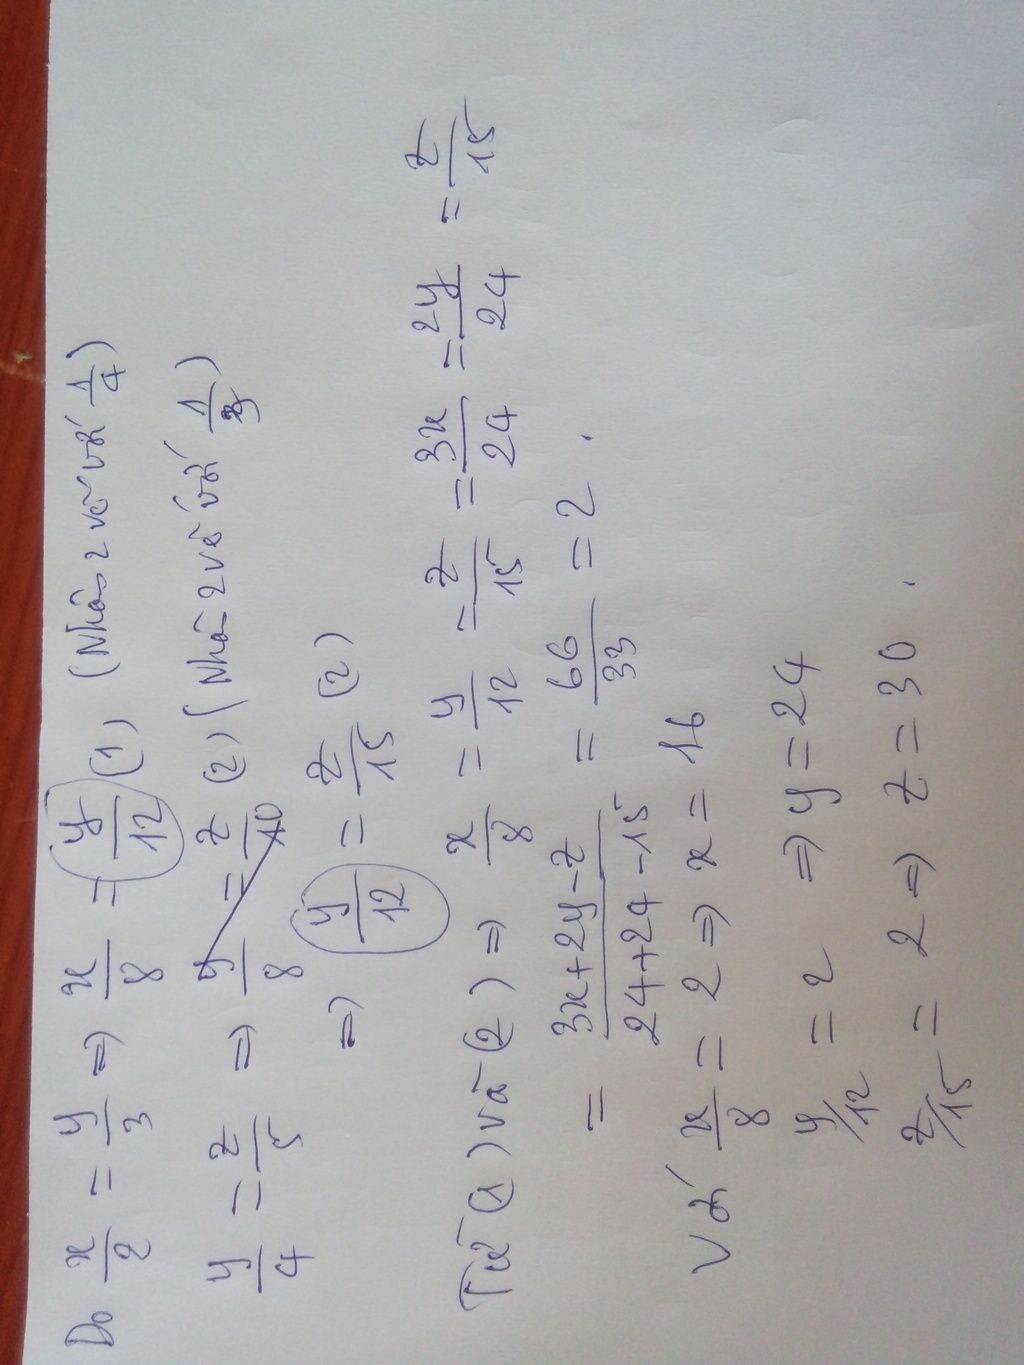 Do x/2 = y/3 ⇒ x/8 = y/12 (1) (Nhân 2 vế với 1/4)
y/4 = z/5 ⇒ y/8 = z/10 (2) (Nhân 2 vế với 1/3)
⇒ y/12 = z/15 (2)
Từ (1) và (2) ⇒ x/8 = y/12 = z/15 = 3x/24 = 2y/24 = z/15
= 3x+2y-z/24+24-15 = 66/33 = 2.
Với x/8 = 2 ⇒ x = 16
y/12 = 2 ⇒ y = 24
z/15 = 2 ⇒ z = 30.